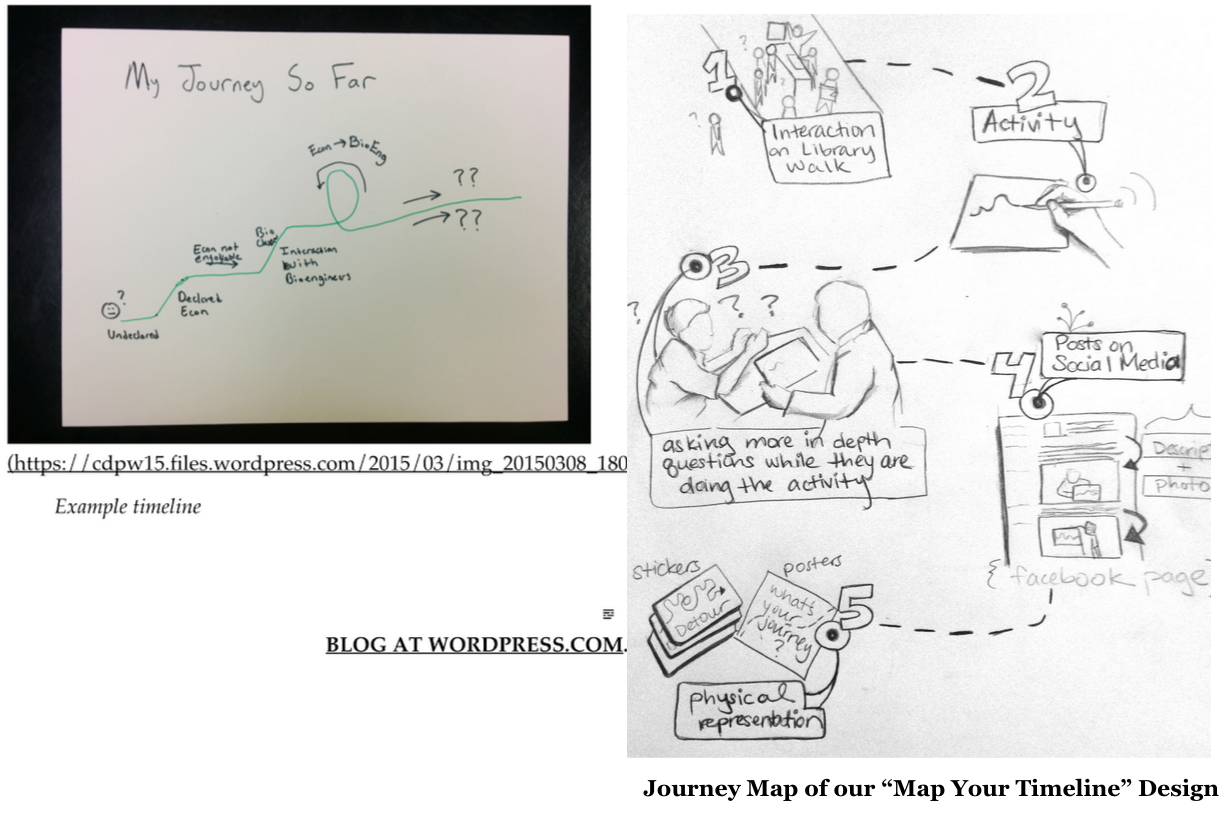 My Journey So Far
Econ → BioEng
??
??
Bio
Class
Econ not
enjoyable
Interaction
with
Bioengineers
?
Declared
Econ
Undeclared
(https://cdpw15.files.wordpress.com/2015/03/img_20150308_180
Example timeline
BLOG AT WORDPRESS.COM.
1
?
?
Interaction
on Library
Walk
2
Activity
3
? ? ?
asking more in depth
questions while they are
doing the activity
4
Posts on
Social Media
Descrip
+
photo
{ facebook page
stickers
Detour
posters
what's
your
journey
?
5
physical
representation
Journey Map of our “Map Your Timeline” Design